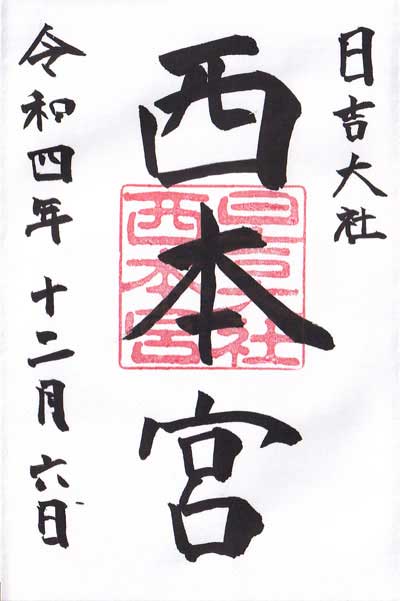 日吉大社
西本宮
日吉大社
西本宮
令和四年 十二月 六日